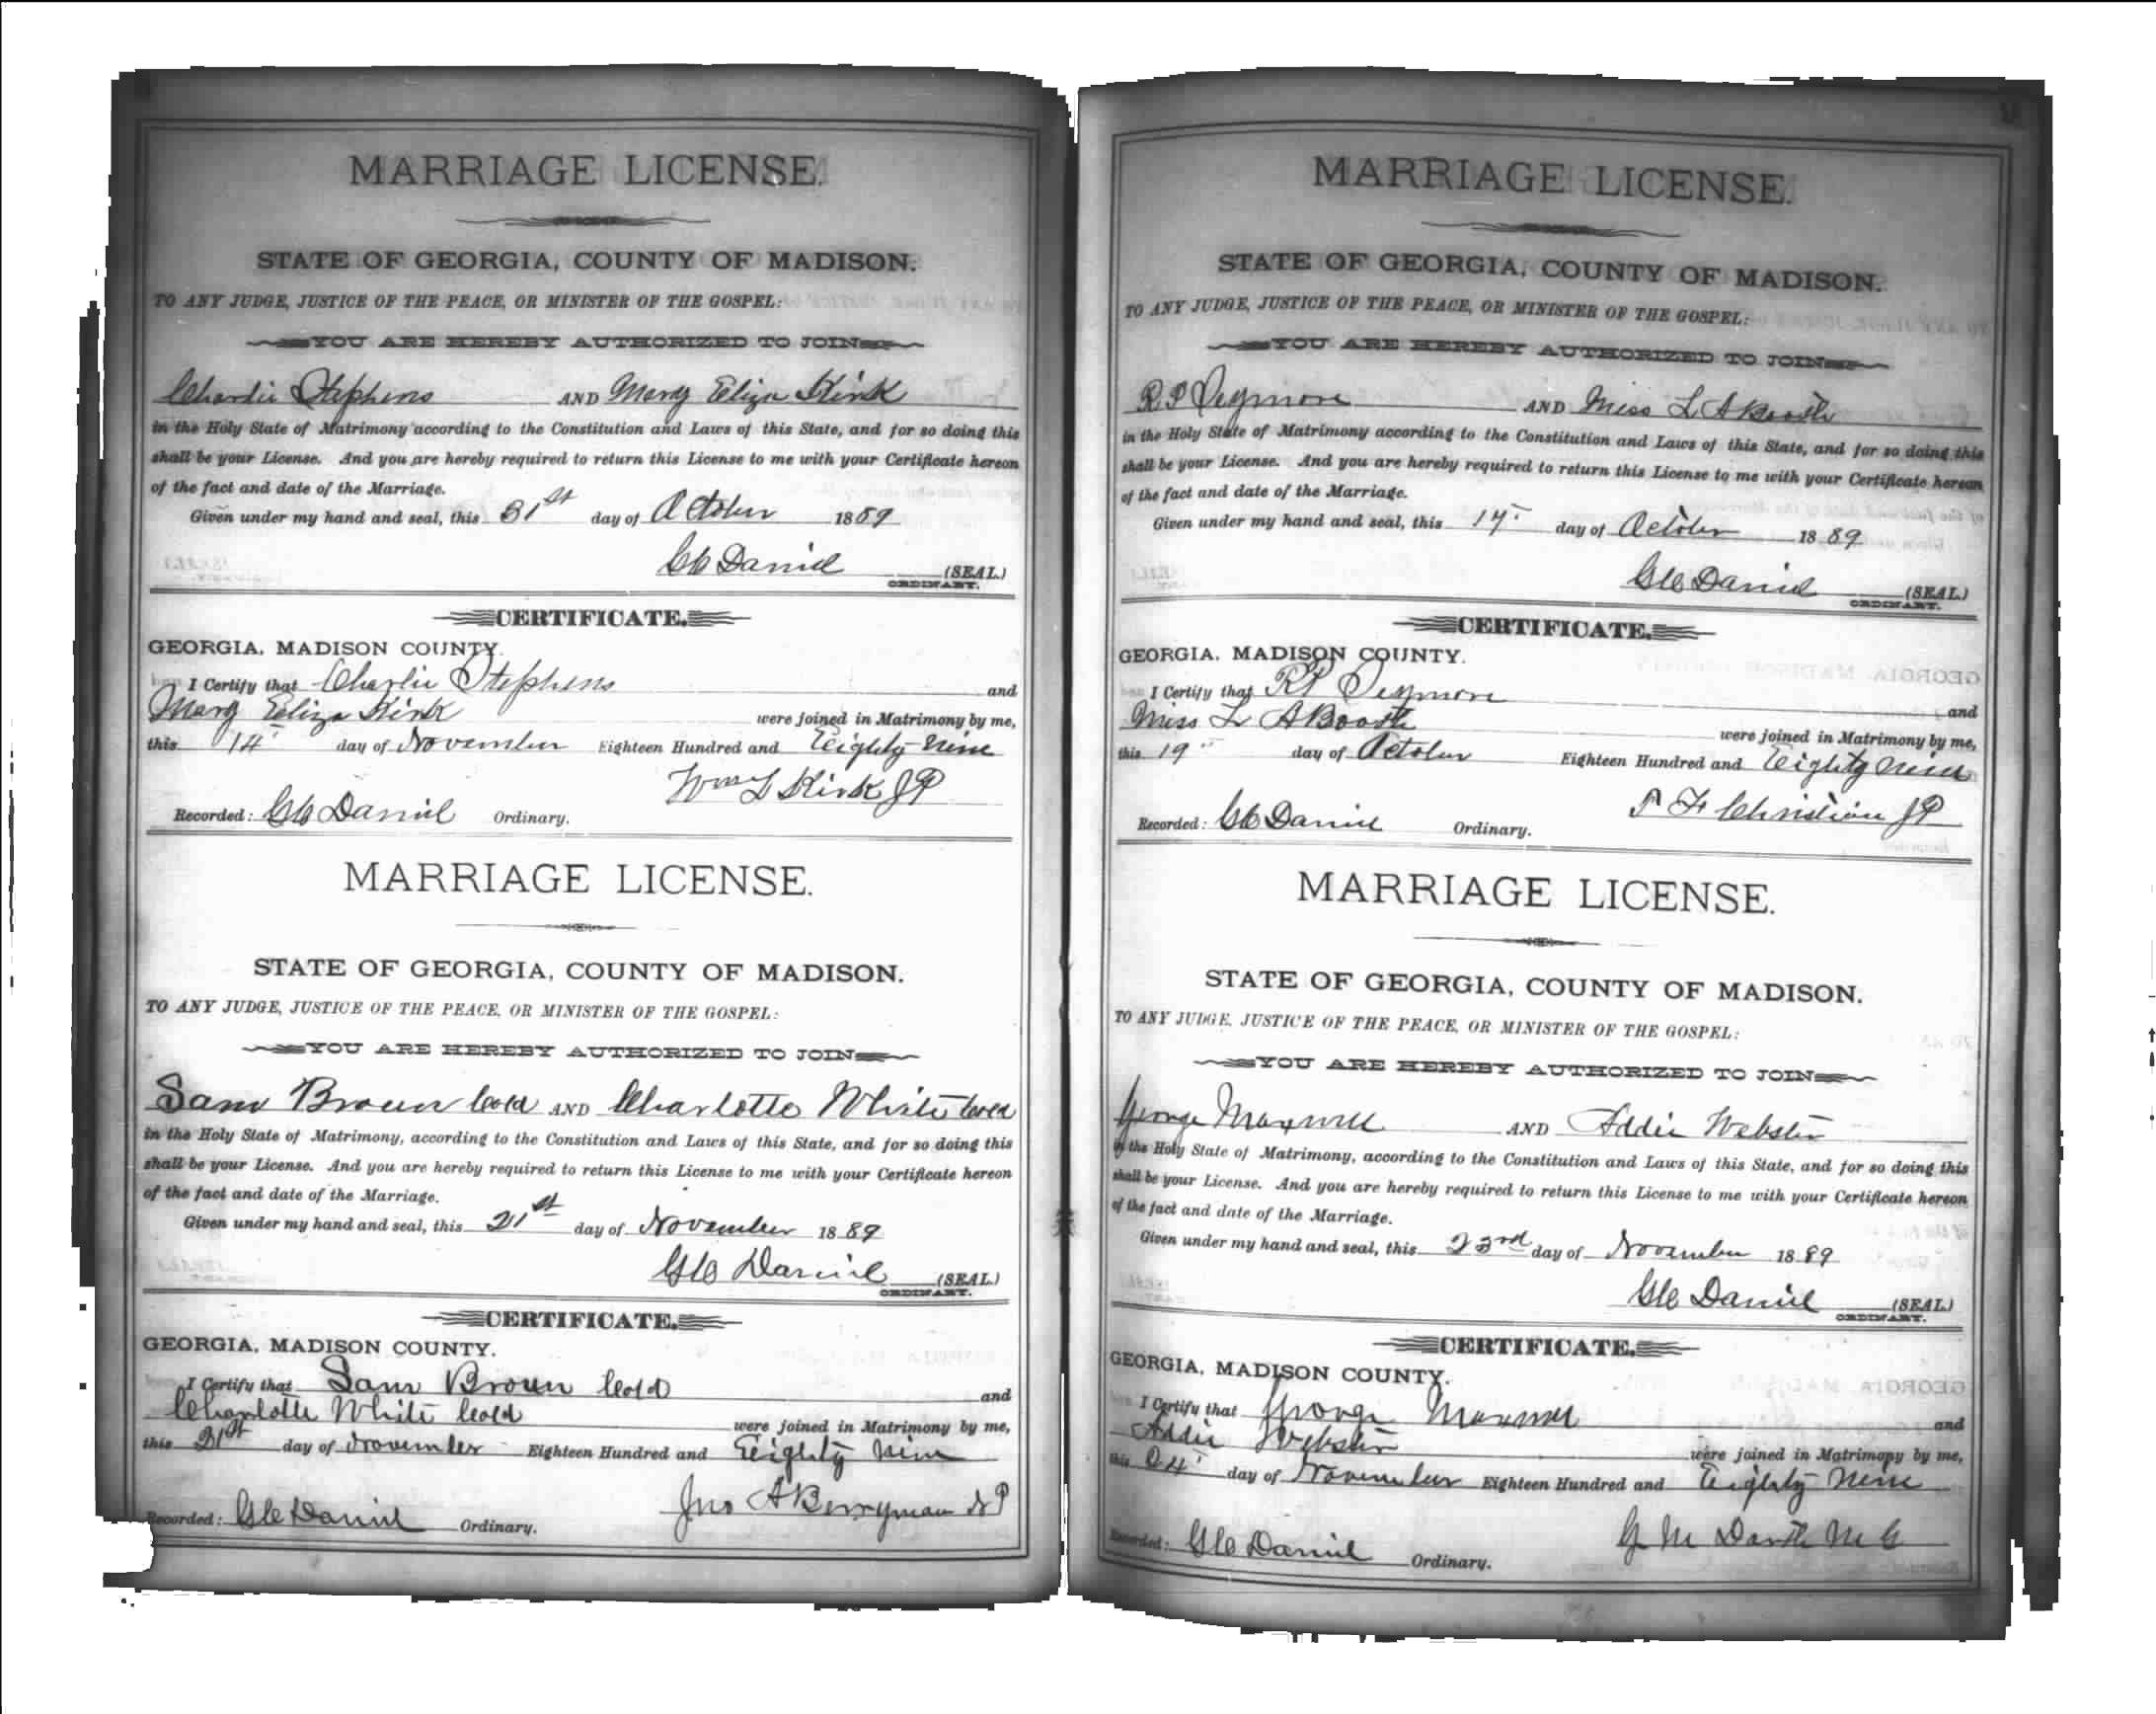 MARRIAGE LICENSE.
STATE OF GEORGIA, COUNTY OF MADISON.
TO ANY JUDGE, JUSTICE OF THE PEACE, OR MINISTER OF THE GOSPEL:
YOU ARE HEREBY AUTHORIZED TO JOIN
Charlie Stephens AND Mary Eliza Kirk
in the Holy State of Matrimony according to the Constitution and Laws of this State, and for so doing this
shall be your License. And you are hereby required to return this License to me with your Certificate hereon
of the fact and date of the Marriage.
Given under my hand and seal, this 31st day of October 1889
Daniel (SEAL.)
ORDINARY.
CERTIFICATE.
GEORGIA, MADISON COUNTY.
I Certify that Charlie Stephens and
Mary Eliza Kirk were joined in Matrimony by me,
this 14 day of November Eighteen Hundred and Eighty Nine
Wm L Kirk JP
Recorded: Daniel Ordinary.
MARRIAGE LICENSE.
STATE OF GEORGIA, COUNTY OF MADISON.
TO ANY JUDGE, JUSTICE OF THE PEACE, OR MINISTER OF THE GOSPEL:
YOU ARE HEREBY AUTHORIZED TO JOIN
Sam Brown Cold AND Charlotte White Cold
in the Holy State of Matrimony, according to the Constitution and Laws of this State, and for so doing this
shall be your License. And you are hereby required to return this License to me with your Certificate hereon
of the fact and date of the Marriage.
Given under my hand and seal, this 21st day of November 1889
Daniel (SEAL.)
ORDINARY.
CERTIFICATE.
GEORGIA, MADISON COUNTY.
I Certify that Sam Brown Cold and
Charlotte White Cold were joined in Matrimony by me,
this 21st day of November Eighteen Hundred and Eighty Nine
Jno A Berryman NP
Recorded: Daniel Ordinary.
MARRIAGE LICENSE.
STATE OF GEORGIA, COUNTY OF MADISON.
TO ANY JUDGE, JUSTICE OF THE PEACE, OR MINISTER OF THE GOSPEL:
YOU ARE HEREBY AUTHORIZED TO JOIN
R P Seymore AND Miss L A Booth
in the Holy State of Matrimony according to the Constitution and Laws of this State, and for so doing this
shall be your License. And you are hereby required to return this License to me with your Certificate hereon
of the fact and date of the Marriage.
Given under my hand and seal, this day of October 1889
Daniel (SEAL.)
ORDINARY.
CERTIFICATE.
GEORGIA, MADISON COUNTY.
I Certify that R P Seymore and
Miss L A Booth were joined in Matrimony by me,
this 19 day of October Eighteen Hundred and Eighty Nine
Christian JP
Recorded: Daniel Ordinary.
MARRIAGE LICENSE.
STATE OF GEORGIA, COUNTY OF MADISON.
TO ANY JUDGE, JUSTICE OF THE PEACE, OR MINISTER OF THE GOSPEL:
YOU ARE HEREBY AUTHORIZED TO JOIN
George Maxwell AND Addie Webster
in the Holy State of Matrimony, according to the Constitution and Laws of this State, and for so doing this
shall be your License. And you are hereby required to return this License to me with your Certificate hereon
of the fact and date of the Marriage.
Given under my hand and seal, this 23rd day of November 1889
Daniel (SEAL.)
ORDINARY.
CERTIFICATE.
GEORGIA, MADISON COUNTY.
I Certify that George Maxwell and
Addie Webster were joined in Matrimony by me,
this 24 day of November Eighteen Hundred and Eighty Nine
M G
Recorded: Daniel Ordinary.